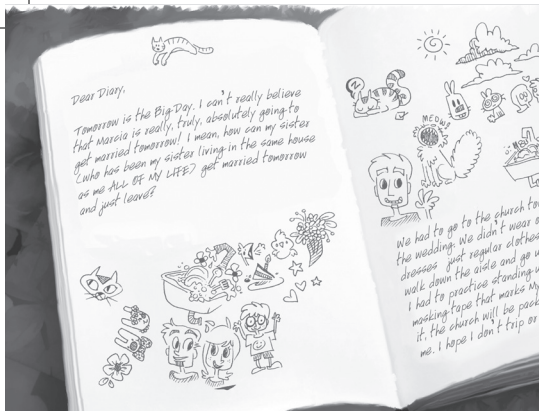 Dear Diary,
Tomorrow is the Big Day. I can't really believe
that Marcia is really, truly, absolutely going to
get married tomorrow! I mean, how can my sister
(who has been my sister living in the same house
as me ALL OF MY LIFE) get married tomorrow
and just leave?
Z
MEOW
We had to go to the church
the wedding. We didn't wear
dresses just regular clothes
walk down the aisle and go
I had to practice standing
masking tape that marks
it, the church will be
me. I hope I don't trip or